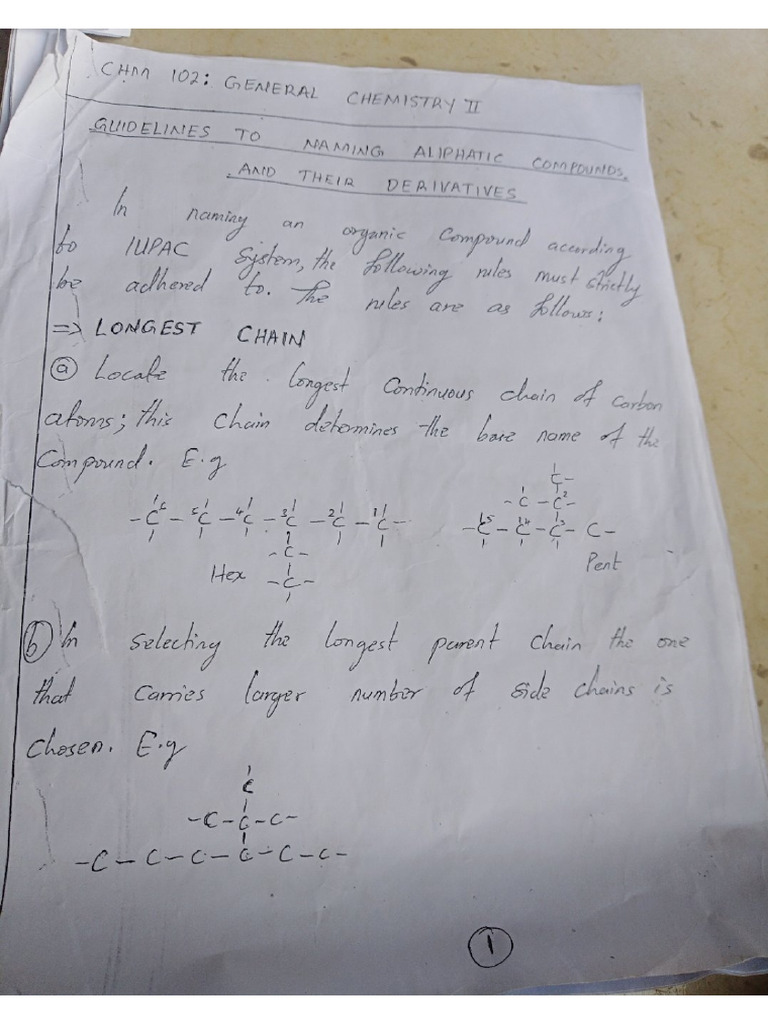 CHM 102: GENERAL CHEMISTRY II
GUIDELINES TO NAMING ALIPHATIC COMPOUNDS
AND THEIR DERIVATIVES
In naming an organic compound according
to IUPAC System, the following rules must strictly
be adhered to. The rules are as follows:
=> LONGEST CHAIN
(a) Locate the longest continuous chain of carbon
atoms; this chain determines the base name of the
Compound. E.g
C-
-C - C2
-C6 - 5C - 4C - 3C - 2C - 1C- -C5 - C4 - C3 - C-
-C-
-C-
Hex Pent
(b) In selecting the longest parent chain the one
that carries larger number of side chains is
chosen. E.g
C
-C-C-C-
-C-C-C-C-C-C-
1